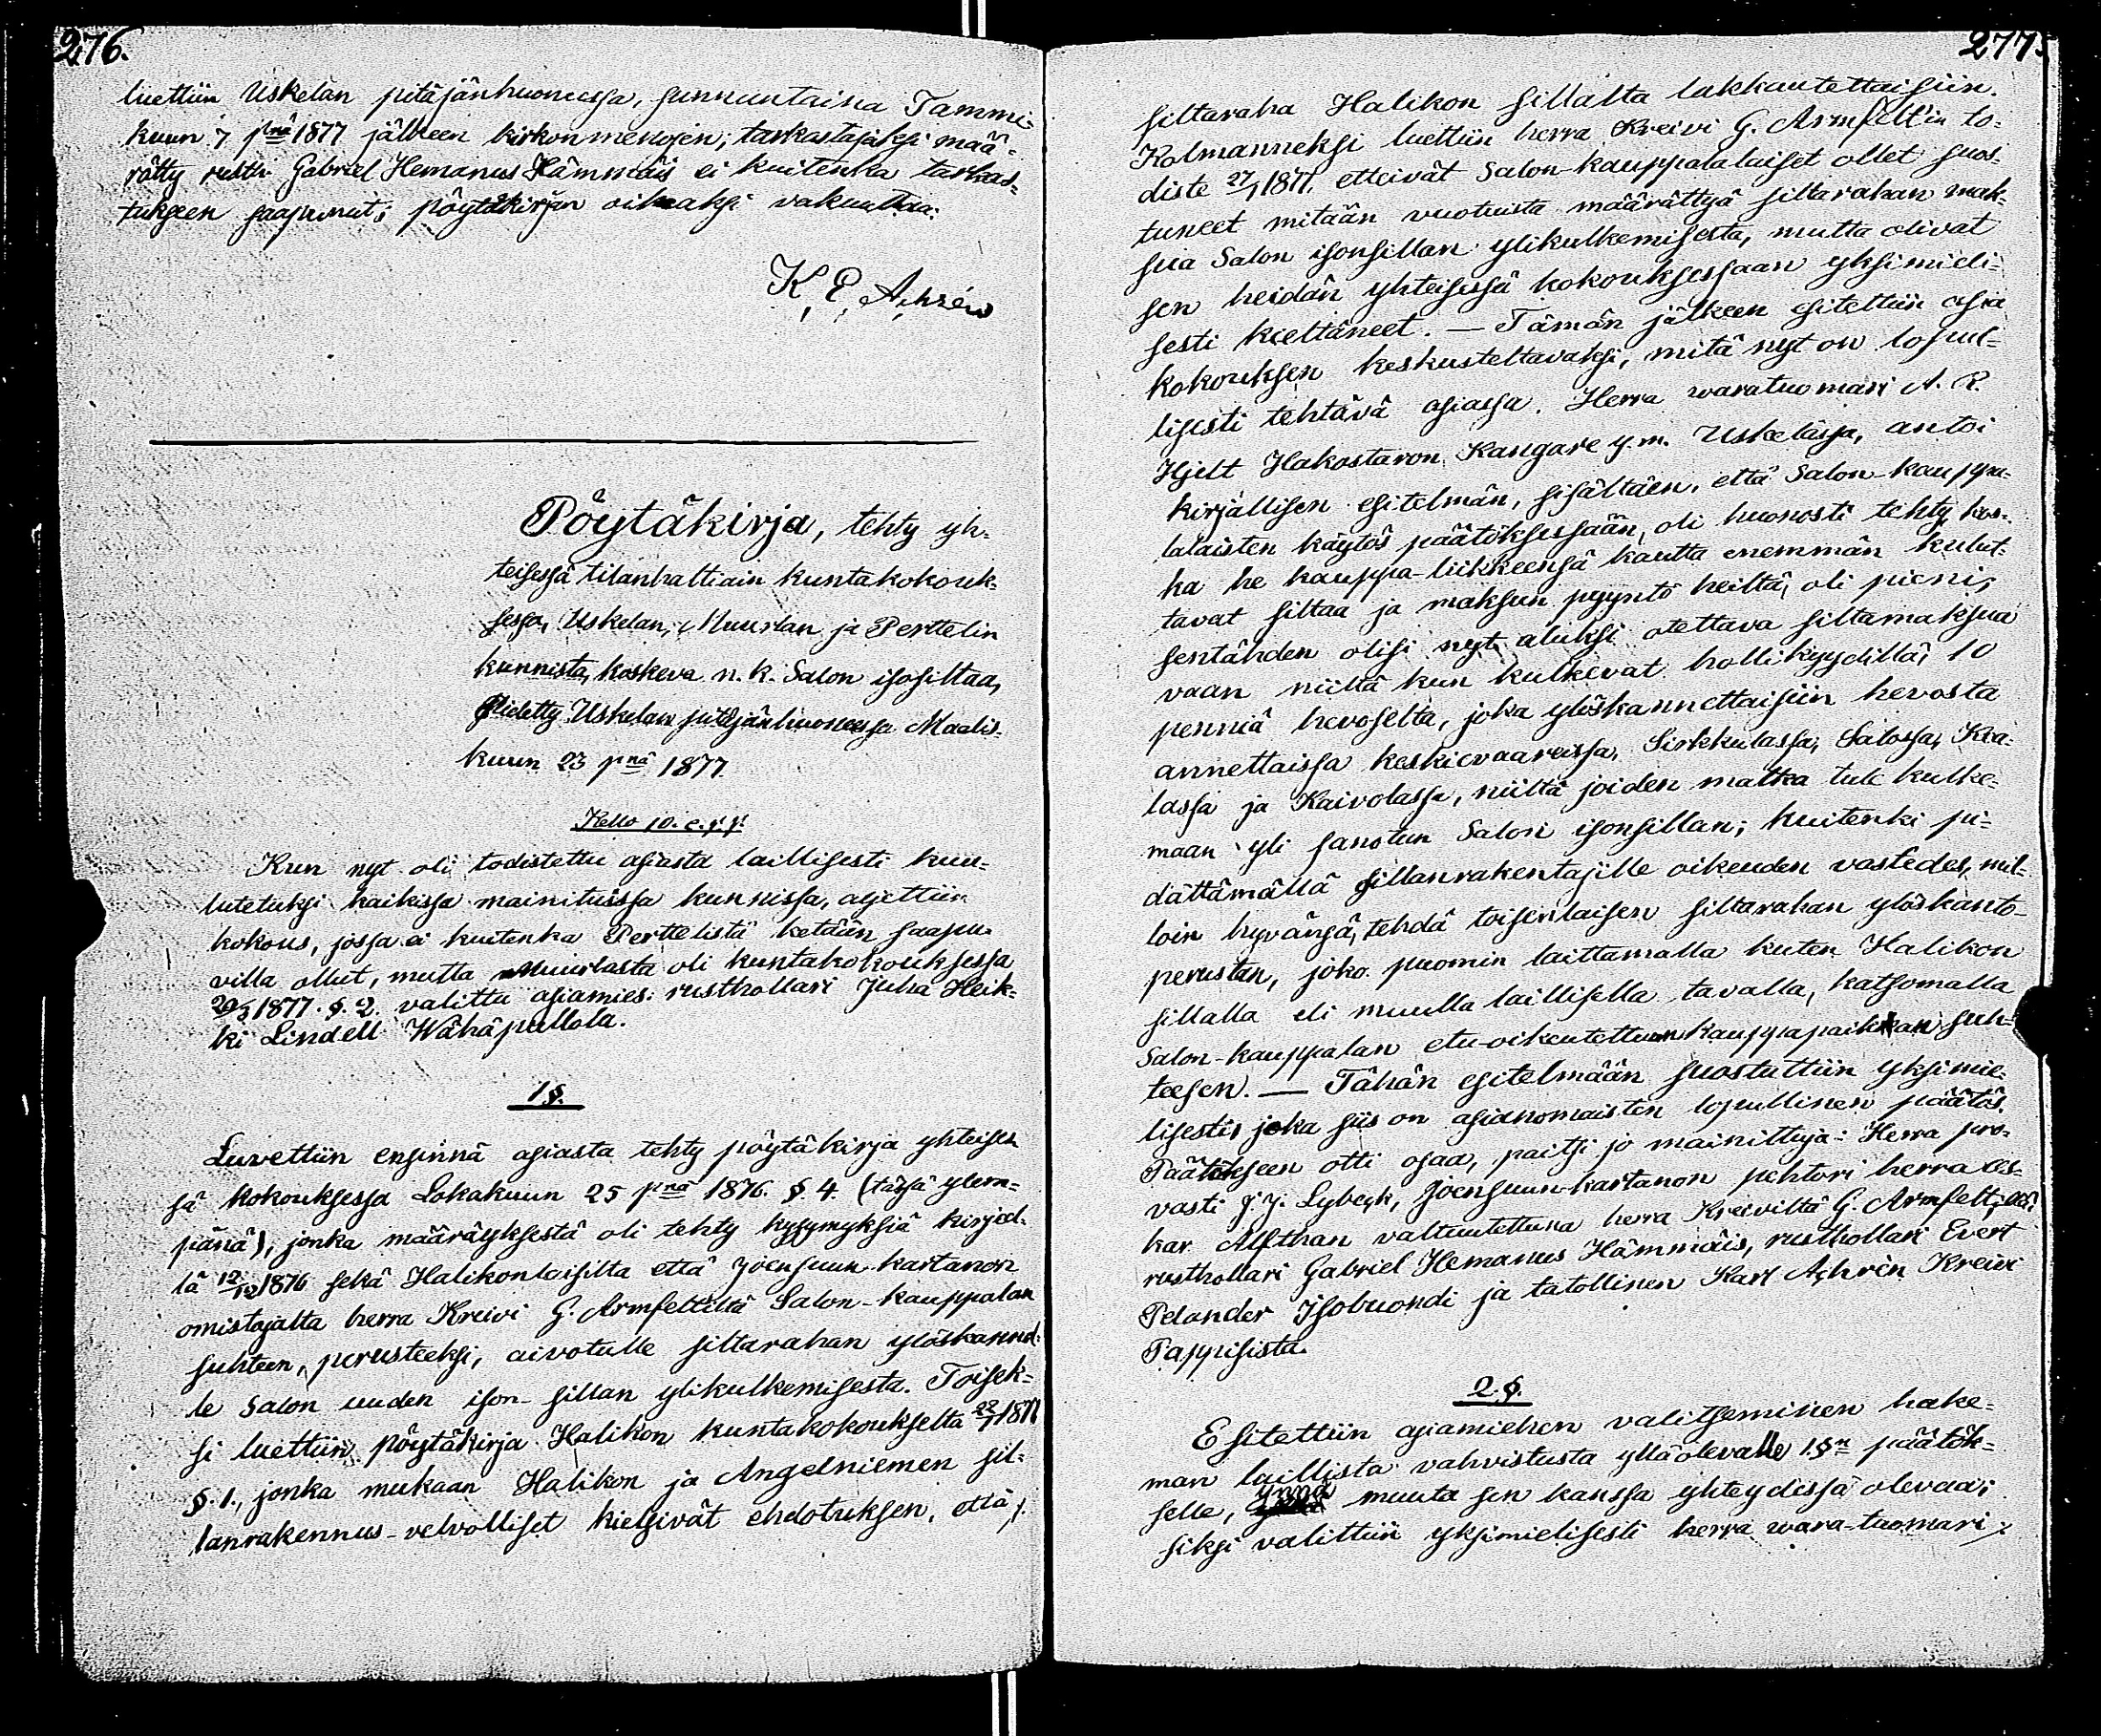 276.
luettiin Uskelan pitäjänhuoneessa, sunnuntaina Tammi-
kuun 7 pnä 1877 jälkeen kirkonmenojen; tarkastajaksi mää-
rätty rustth. Gabriel Hemanus Hämmäis ei kuitenka tarkas-
tukseen saapunut; pöytäkirjan oikeaksi vakuuttaa:
K. E. Achrén
Pöytäkirja, tehty yh-
teisessä tilanhaltiain kuntakokouk-
sessa, Uskelan, Muurlan ja Perttelin
kunnista, koskeva n. k. Salon isosiltaa,
Pidetty Uskelan pitäjänhuoneessa Maalis-
kuun 23 pnä 1877.
Kello 10. e. p. p.
Kun nyt oli todistettu asiasta laillisesti kuu-
lutetuksi kaikissa mainituissa kunnissa, aljettiin
kokous, jossa ei kuitenka Perttelistä ketään saapu-
villa ollut, mutta Muurlasta oli kuntakokouksessa
20/3 1877. §. 2. valittu asiamies: rusthollari Juha Heik-
ki Lindell Wähäpullola.
1 §.
Luvettiin ensinnä asiasta tehty pöytäkirja yhteises-
sä kokouksessa Lokakuun 25 pnä 1876. §. 4. (tässä ylem-
pänä), jonka määräyksestä oli tehty kysymyksiä kirjal-
la 12/12 1876 sekä Halikonlaisilta että Joensuun-kartanon
omistajalta herra Kreivi G. Armfeltiltä Salon-kauppalan
suhteen, perusteeksi, aivotulle siltarahan ylöskannol-
le Salon uuden ison-sillan ylikulkemisesta. Toisek-
si luettiin pöytäkirja Halikon kuntakokoukselta 22/1 1877
§. 1., jonka mukaan Halikon ja Angelniemen sil-
lanrakennus-velvolliset kielsivät ehdotuksen, että
277.
siltaraha Halikon sillalta lakkautettaisiin.
Kolmanneksi luettiin herra Kreivi G. Armfelt'in to-
diste 27/1 1877, etteivät Salon-kauppalalaiset ollet suos-
tuneet mitään vuotuista määrättyä siltarahan mak-
sua Salon isonsillan ylikulkemisesta, mutta olivat
sen heidän yhteisessä kokouksessaan yksimieli-
sesti kieltäneet. — Tämän jälkeen esitettiin asia
kokouksen keskusteltavaksi, mitä nyt on lopul-
lisesti tehtävä asiassa. Herra waratuomari A. R.
Hjelt Hakostaron, Kangare y. m. Uskelassa, antoi
kirjallisen esitelmän, sisältäen, että Salon-kauppa-
lalaisten käytös päätöksessään, oli huonosti tehty, kos-
ka he kauppa-liikkeensä kautta enemmän kulut-
tavat siltaa ja maksun pyyntö heiltä, oli pieni;
sentähden olisi nyt aluksi otettava siltamaksua
vaan niiltä kun kulkevat hollikyydillä, 10
penniä hevoselta, joka ylöskannettaisiin hevosta
annettaissa keskievaareissa, Sirkkulassa, Salossa, Kra-
lassa ja Kaivolassa, niiltä joiden matka tule kulke-
maan yli sanotun Salon isonsillan; kuitenki pi-
dättämällä sillanrakentajille oikeuden vastedes, mil-
loin hyvänsä, tehdä toisenlaisen siltarahan ylöskanto-
perustan, joko puomin laittamalla kuten Halikon
sillalla eli muulla laillisella tavalla, katsomalla
Salon-kauppalan etu-oikeutettuun kauppapaikkan suh-
teesen. — Tähän esitelmään suostuttiin yksimie-
lisesti, joka siis on asianomaisten lopullinen päätös.
Päätökseen otti osaa, paitsi jo mainittuja: Herra pro-
vasti J. J. Lybeck, Joensuun-kartanon pehtori herra Os-
kar Alfthan valtuutettuna herra Kreiviltä G. Armfelt:
rusthollari Gabriel Hemanus Hämmäis, rusthollari Evert
Pelander Isobuondi ja tatollinen Karl Achrén Kreivi
Pappisista.
2. §.
Esitettiin asiamiehen valitseminen hake-
man laillista vahvistusta yllä olevalle 1. §n päätök-
selle, ynnä muuta sen kanssa yhteydessä olevaa;
siksi valittiin yksimielisesti herra wara-tuomari